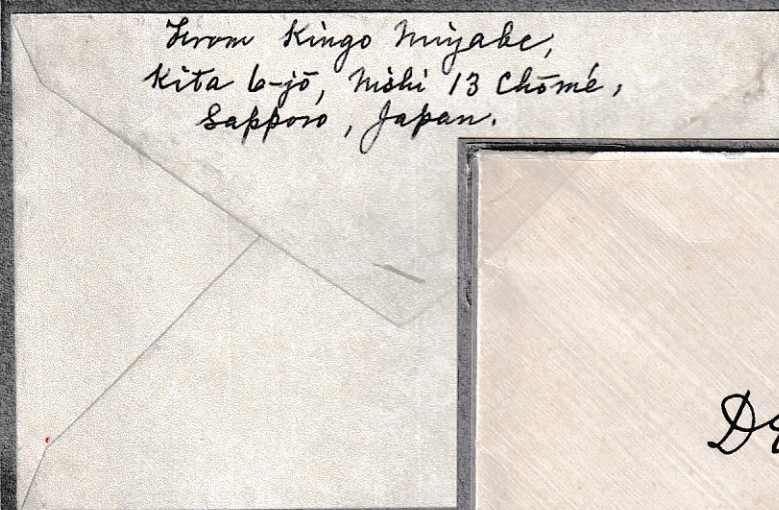 From Kingo Miyabe,
Kita 6-jō, Nishi 13 Chōmé,
Sapporo, Japan.